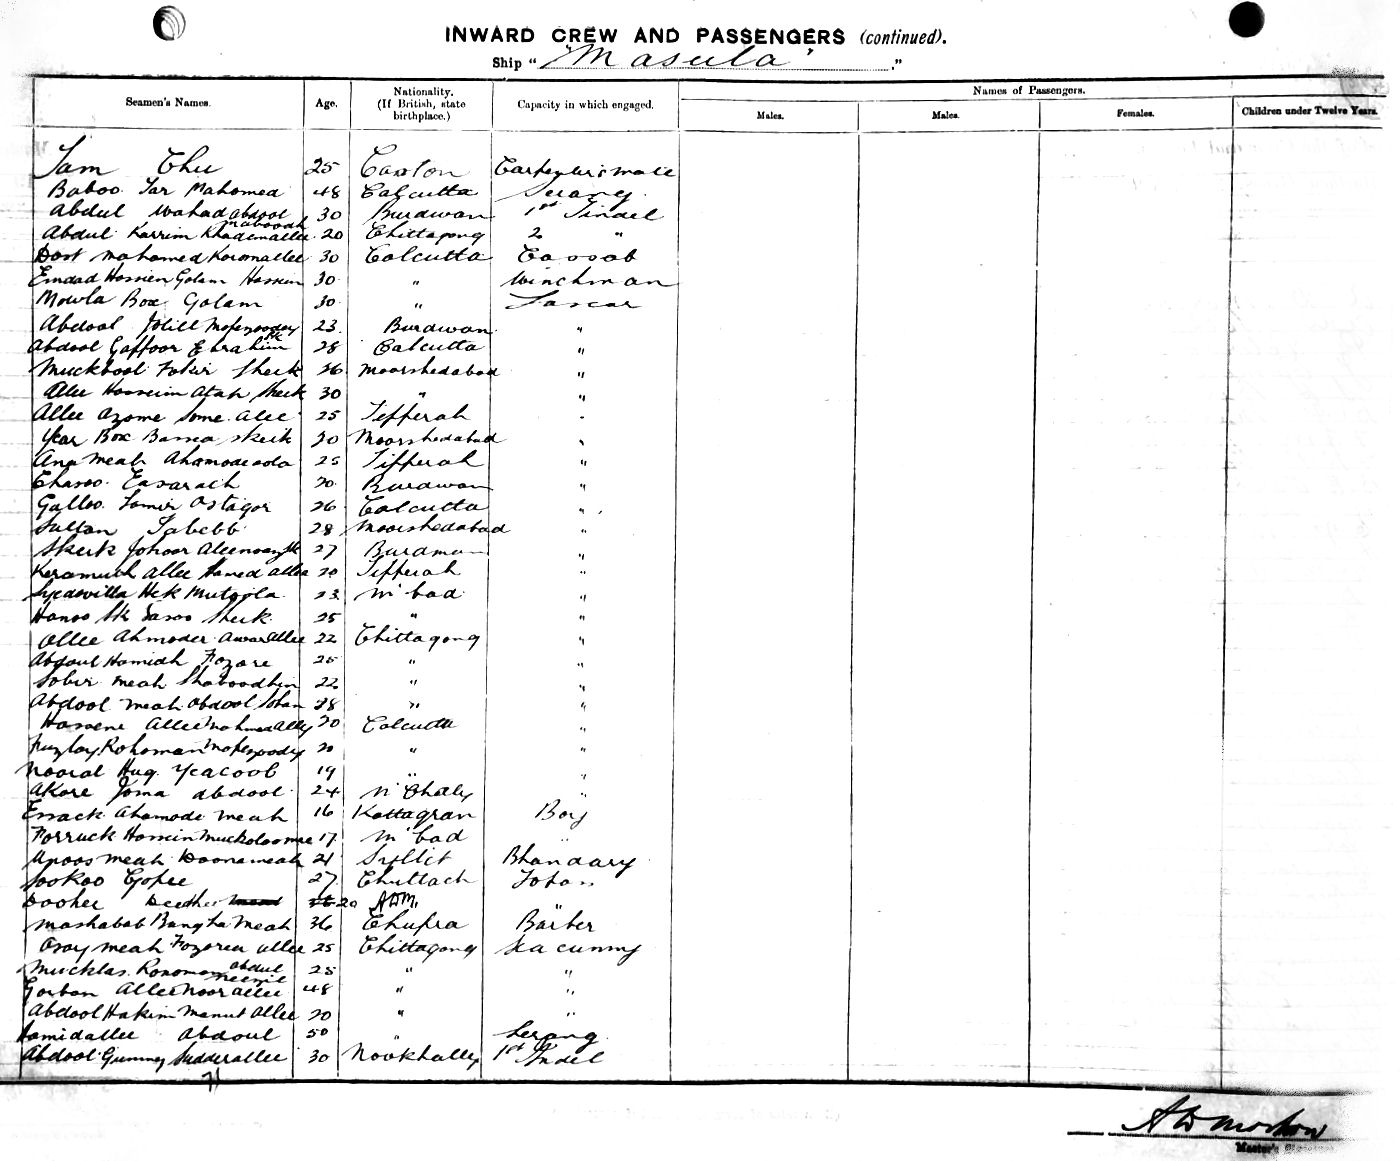 INWARD CREW AND PASSENGERS (continued).
Ship " "Masula" ."
Seamen's Names. Age. Nationality. (If British, state birthplace.) Capacity in which engaged. Names of Passengers.
Males. Males. Females. Children under Twelve Years.
Sam Chu 25 Canton Carpenter's mate
Baboo Jar Mahomed 48 Calcutta Serang
Abdul Wahad Abdool 30 Burdwan 1st Tindel
Maboodh
Abdul Karrim Khademallee 20 Chittagong 2 "
Dost Mahomed Koromallee 30 Calcutta Cassab
Emdad Hossien Golam Hossein 30 " Winchman
Mowla Box Golam 30 " Lascar
Abdool Jolill Mofezooddy 23 Burdwan "
Abdool Gaffoor Ebrahim Sk 28 Calcutta "
Muckbool Fokir Sheik 36 Moorshedabad "
Alee Hosseim Atah Sheik 30 " "
Allee Azome Some Alee 25 Tipperah "
Year Box Bassa Skeik 30 Moorshedabad "
Ana Meah Ahamodeoola 25 Tipperah "
Chasoo Easarach 20 Burdwan "
Galloo Somir Ostagor 26 Calcutta "
Sultan Tabebb 28 Moorshedabad "
Skeik Johoor Aleenoazy Sk 27 Burdman "
Keramuth Allee Hamed Allee 20 Tipperah "
Syedovilla Hek Mutoola 23 M'bad "
Hanoo Sk Sasoo Sheik 25 " "
Ollee Ahmoder Awar Allee 22 Chittagong "
Abdoul Hamidh Fozare 25 " "
Sobir Meah Shaboodhin 22 " "
Abdool Meah Abdool Sohan 28 " "
Hossene Allee Mahmed Ally 20 Calcutta "
Fuzloy Rohoman Mofezooddy 20 " "
Nooral Huq Yeacoob 19 " "
Akore Joma Abdool 24 N'Chally "
Essack Ahamode Meah 16 Kattagran Boy
Forruck Hossein Muckoloomae 17 M'bad "
Apoos Meah Doonameah 21 Syllit Bhandary
Sookoo Gopee 27 Chuttack Topas
Dooher Deether 20 ADM "
Mashabab Bangha Meah 36 Chupra Barber
Osoy Meah Fozorer Allee 25 Chittagong Sea cunny
Mucklas Ronoman Abdul 25 " "
Gorban Allee Noor Allee 48 " "
Abdool Hakim Manut Allee 20 " "
Hamidallee Abdoul 50 " Serang
Abdool Gunney Sudderallee 30 Noakhally 1st Tindel
71
A D Morton
Master's